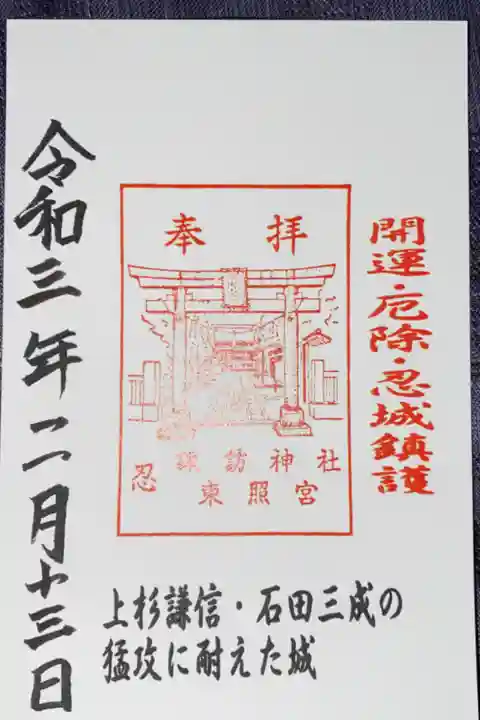 開運・厄除・忍城鎮護
奉拝
諏訪神社
忍 東照宮
令和三年二月十三日
上杉謙信・石田三成の
猛攻に耐えた城